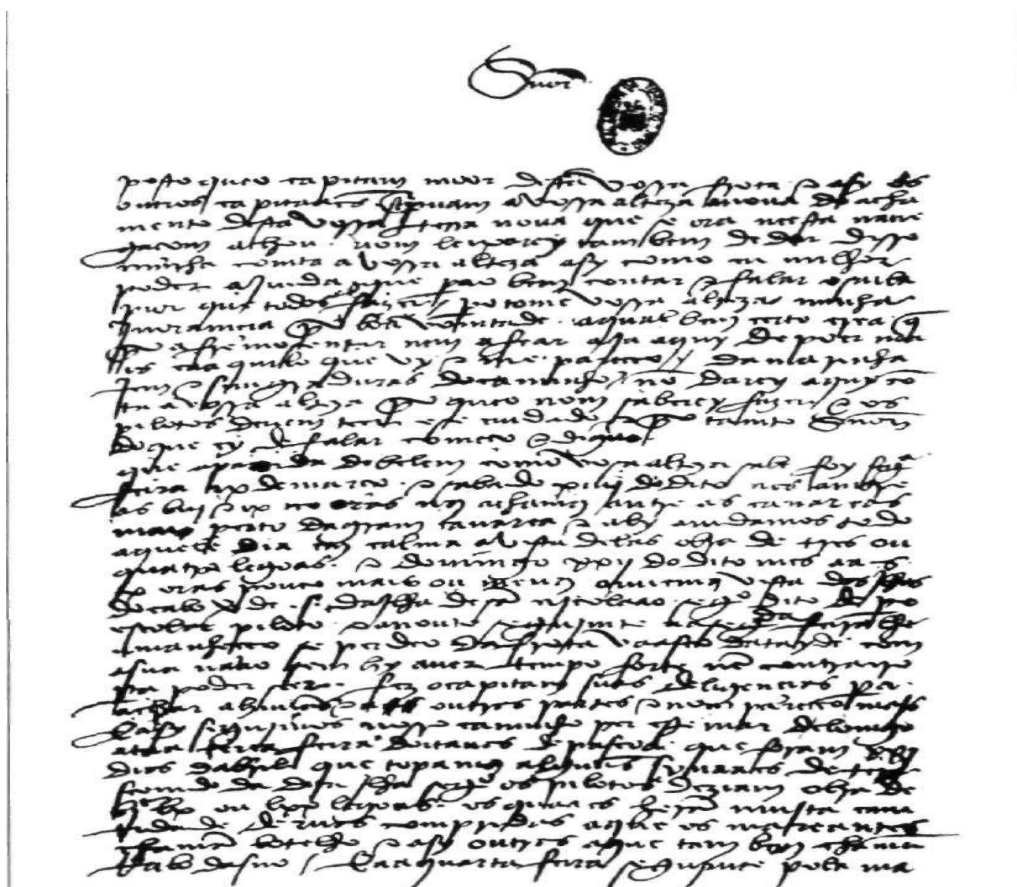 Snõr
posto que o capitam moor desta vossa frota e asy os
outros capitaães screpuam a vossa alteza a noua do acha
mento desta vossa terra noua que se ora neesta naue
gaçom achou. nom leixarey tambem de dar disso
minha comta a vossa alteza asy como eu milhor
poder ajmda que pera o bem contar e falar o saiba
pior que todos fazer. pero tome vossa alteza minha
jnoramçia por boa vomtade. a qual bem certo crea q̃
por afremosentar nem afear aja aquy de poer ma
is ca aquilo que vy e me pareçeo / da marinha
jem e simgraduras do caminho nõ darey aquy cõ
ta a vossa alteza por que o nom saberey fazer e os
pilotos deuem teer ese cuidado e por tanto Snõr
do que ey de falar começo e diguo
que a partida de belem como vosa alteza sabe foy segª
feira ix de março. e sabado xiiij do dito mes amtre
as biij e ix oras nos achamos antre as canareas
mais perto da gram canarea e aly amdamos todo
aquele dia em calma a vista delas obra de tres ou
quatro legoas. e domingo xxij do dito mes aas
x oras pouco mais ou menos ouuemos vista das jlhas
do cabo verde. s. da jlha de sã nicolaao segº dito de pº
escolar piloto. e a noute segujmte aa segª feira lhe
amanheçeo se perdeo da frota vaasco datayde com
a sua naao sem hy auer tempo forte nẽ contrairo
pera poder seer. fez o capitam suas deligençias pera o
achar a huũas e a outras partes e nom pareçeo mais
E asy segujmos nosso caminho per este mar de lomgo
ataa terça feira doitauas de pascoa que foram xxj
dias dabril que topamos alguũs synaaes de tera
seemdo da dita jlha segº os pilotos deziam obra de
bjᶜ lx ou lxx legoas. os quaaes herã mujta camti
dade deruas compridas a que os mareantes
chamã botelho e asy outras a que tambem chamã
Rabo dasno / E aa quarta feira segujmte pola ma